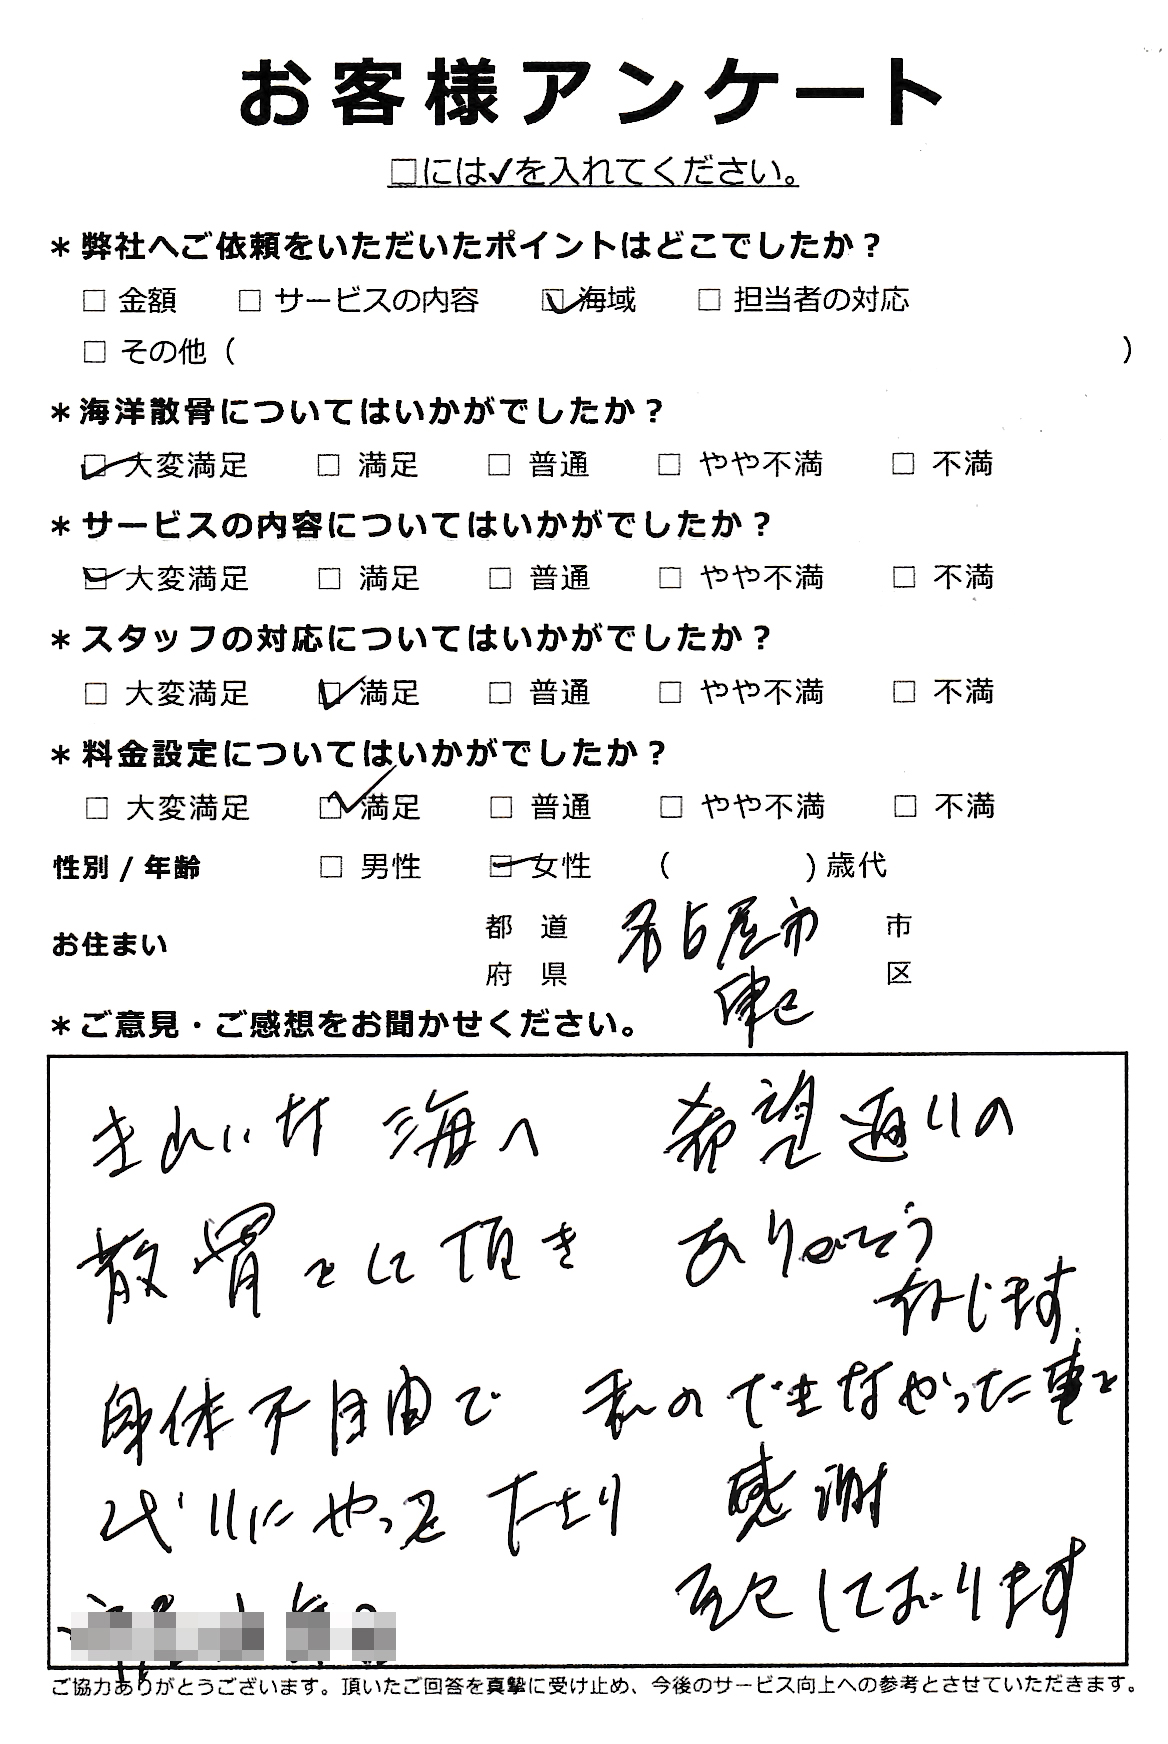 お客様アンケート
□には✓を入れてください。
＊弊社へご依頼をいただいたポイントはどこでしたか？
□ 金額 □ サービスの内容 ☑ 海域 □ 担当者の対応
□ その他（ ）
＊海洋散骨についてはいかがでしたか？
☑ 大変満足 □ 満足 □ 普通 □ やや不満 □ 不満
＊サービスの内容についてはいかがでしたか？
☑ 大変満足 □ 満足 □ 普通 □ やや不満 □ 不満
＊スタッフの対応についてはいかがでしたか？
□ 大変満足 ☑ 満足 □ 普通 □ やや不満 □ 不満
＊料金設定についてはいかがでしたか？
□ 大変満足 ☑ 満足 □ 普通 □ やや不満 □ 不満
性別 / 年齢 □ 男性 ☑ 女性 （ ）歳代
お住まい 都 道 府 県 名古屋市 市 区
＊ご意見・ご感想をお聞かせください。
きれいな 海へ 希望通りの
散骨をして頂き ありがとう
存じます
身体不自由で 私のできなかった事を
代りにやって 下さり 感謝
しております
ご協力ありがとうございます。頂いたご回答を真摯に受け止め、今後のサービス向上への参考とさせていただきます。